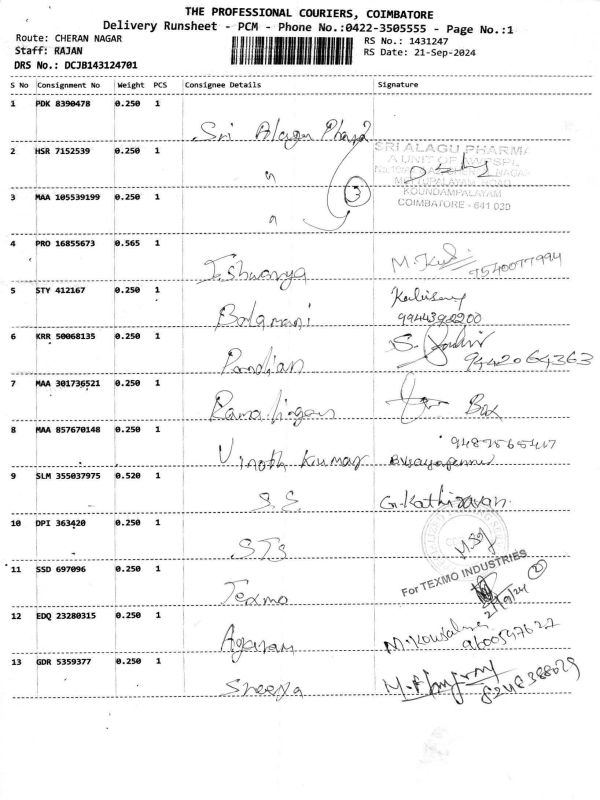 THE PROFESSIONAL COURIERS, COIMBATORE
Delivery Runsheet - PCM - Phone No.:0422-3505555 - Page No.:1
Route: CHERAN NAGAR
RS No.: 1431247
Staff: RAJAN
RS Date: 21-Sep-2024
DRS No.: DCJB143124701
S No Consignment No Weight PCS Consignee Details Signature
1 PDK 8390478 0.250 1
Sri Alagu
SRI ALAGU PHARMA
2 HSR 7152539 0.250 1
A UNIT OF
"
3
3 MAA 105539199 0.250 1
KOUNDAMPALAYAM
COIMBATORE - 641 030
"
4 PRO 16855673 0.565 1
Ishwarya
M.
9540077994
5 STY 412167 0.250 1
Balamani
6 KRR 50068135 0.250 1
Pandian
S.
9442064363
7 MAA 301736521 0.250 1
Ramalingam
Box
8 MAA 857670148 0.250 1
Vinoth Kumar
9 SLM 355037975 0.520 1
S.S.
G.Kathiravan.
10 DPI 363420 0.250 1
STS
11 SSD 697096 0.250 1
For TEXMO INDUSTRIES
2
Texmo
12 EDQ 23280315 0.250 1
Agaram
M.Kousalya
9600547622
13 GDR 5359377 0.250 1
Sheeja
M.
8248388629